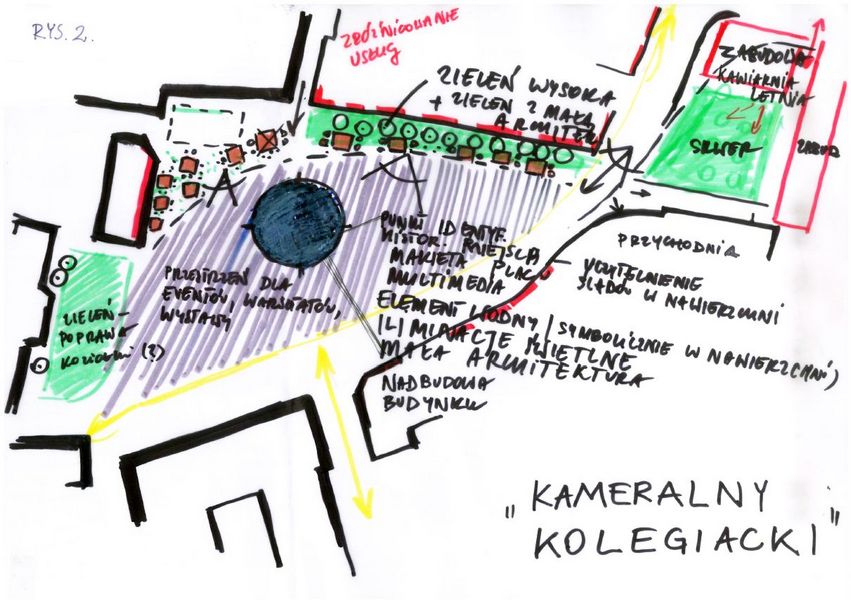 RYS. 2.
ZRÓŻNICOWANIE
USŁUG
ZIELEŃ WYSOKA
+ ZIELEŃ Z MAŁĄ
ARCHITEK.
ZABUDOWA
KAWIARNIA
LETNIA
SKWER
ZABUD
PRZYCHODNIA
PUNKT IDENTYF.
HISTOR. MIEJSCA
MAKIETA PLACU
MULTIMEDIA
UCZYTELNIENIE
ŚLADÓW W NAWIERZCHNI
ELEMENT WODNY
ILUMINACJE ŚWIETLNE
(SYMBOLICZNIE W NAWIERZCHNI)
MAŁA ARCHITEKTURA
NADBUDOWA
BUDYNKU
PRZESTRZEŃ DLA
EVENTÓW, WARSZTATÓW,
WYSTAWY
ZIELEŃ -
POPRAWA
(?)
"KAMERALNY
KOLEGIACKI"